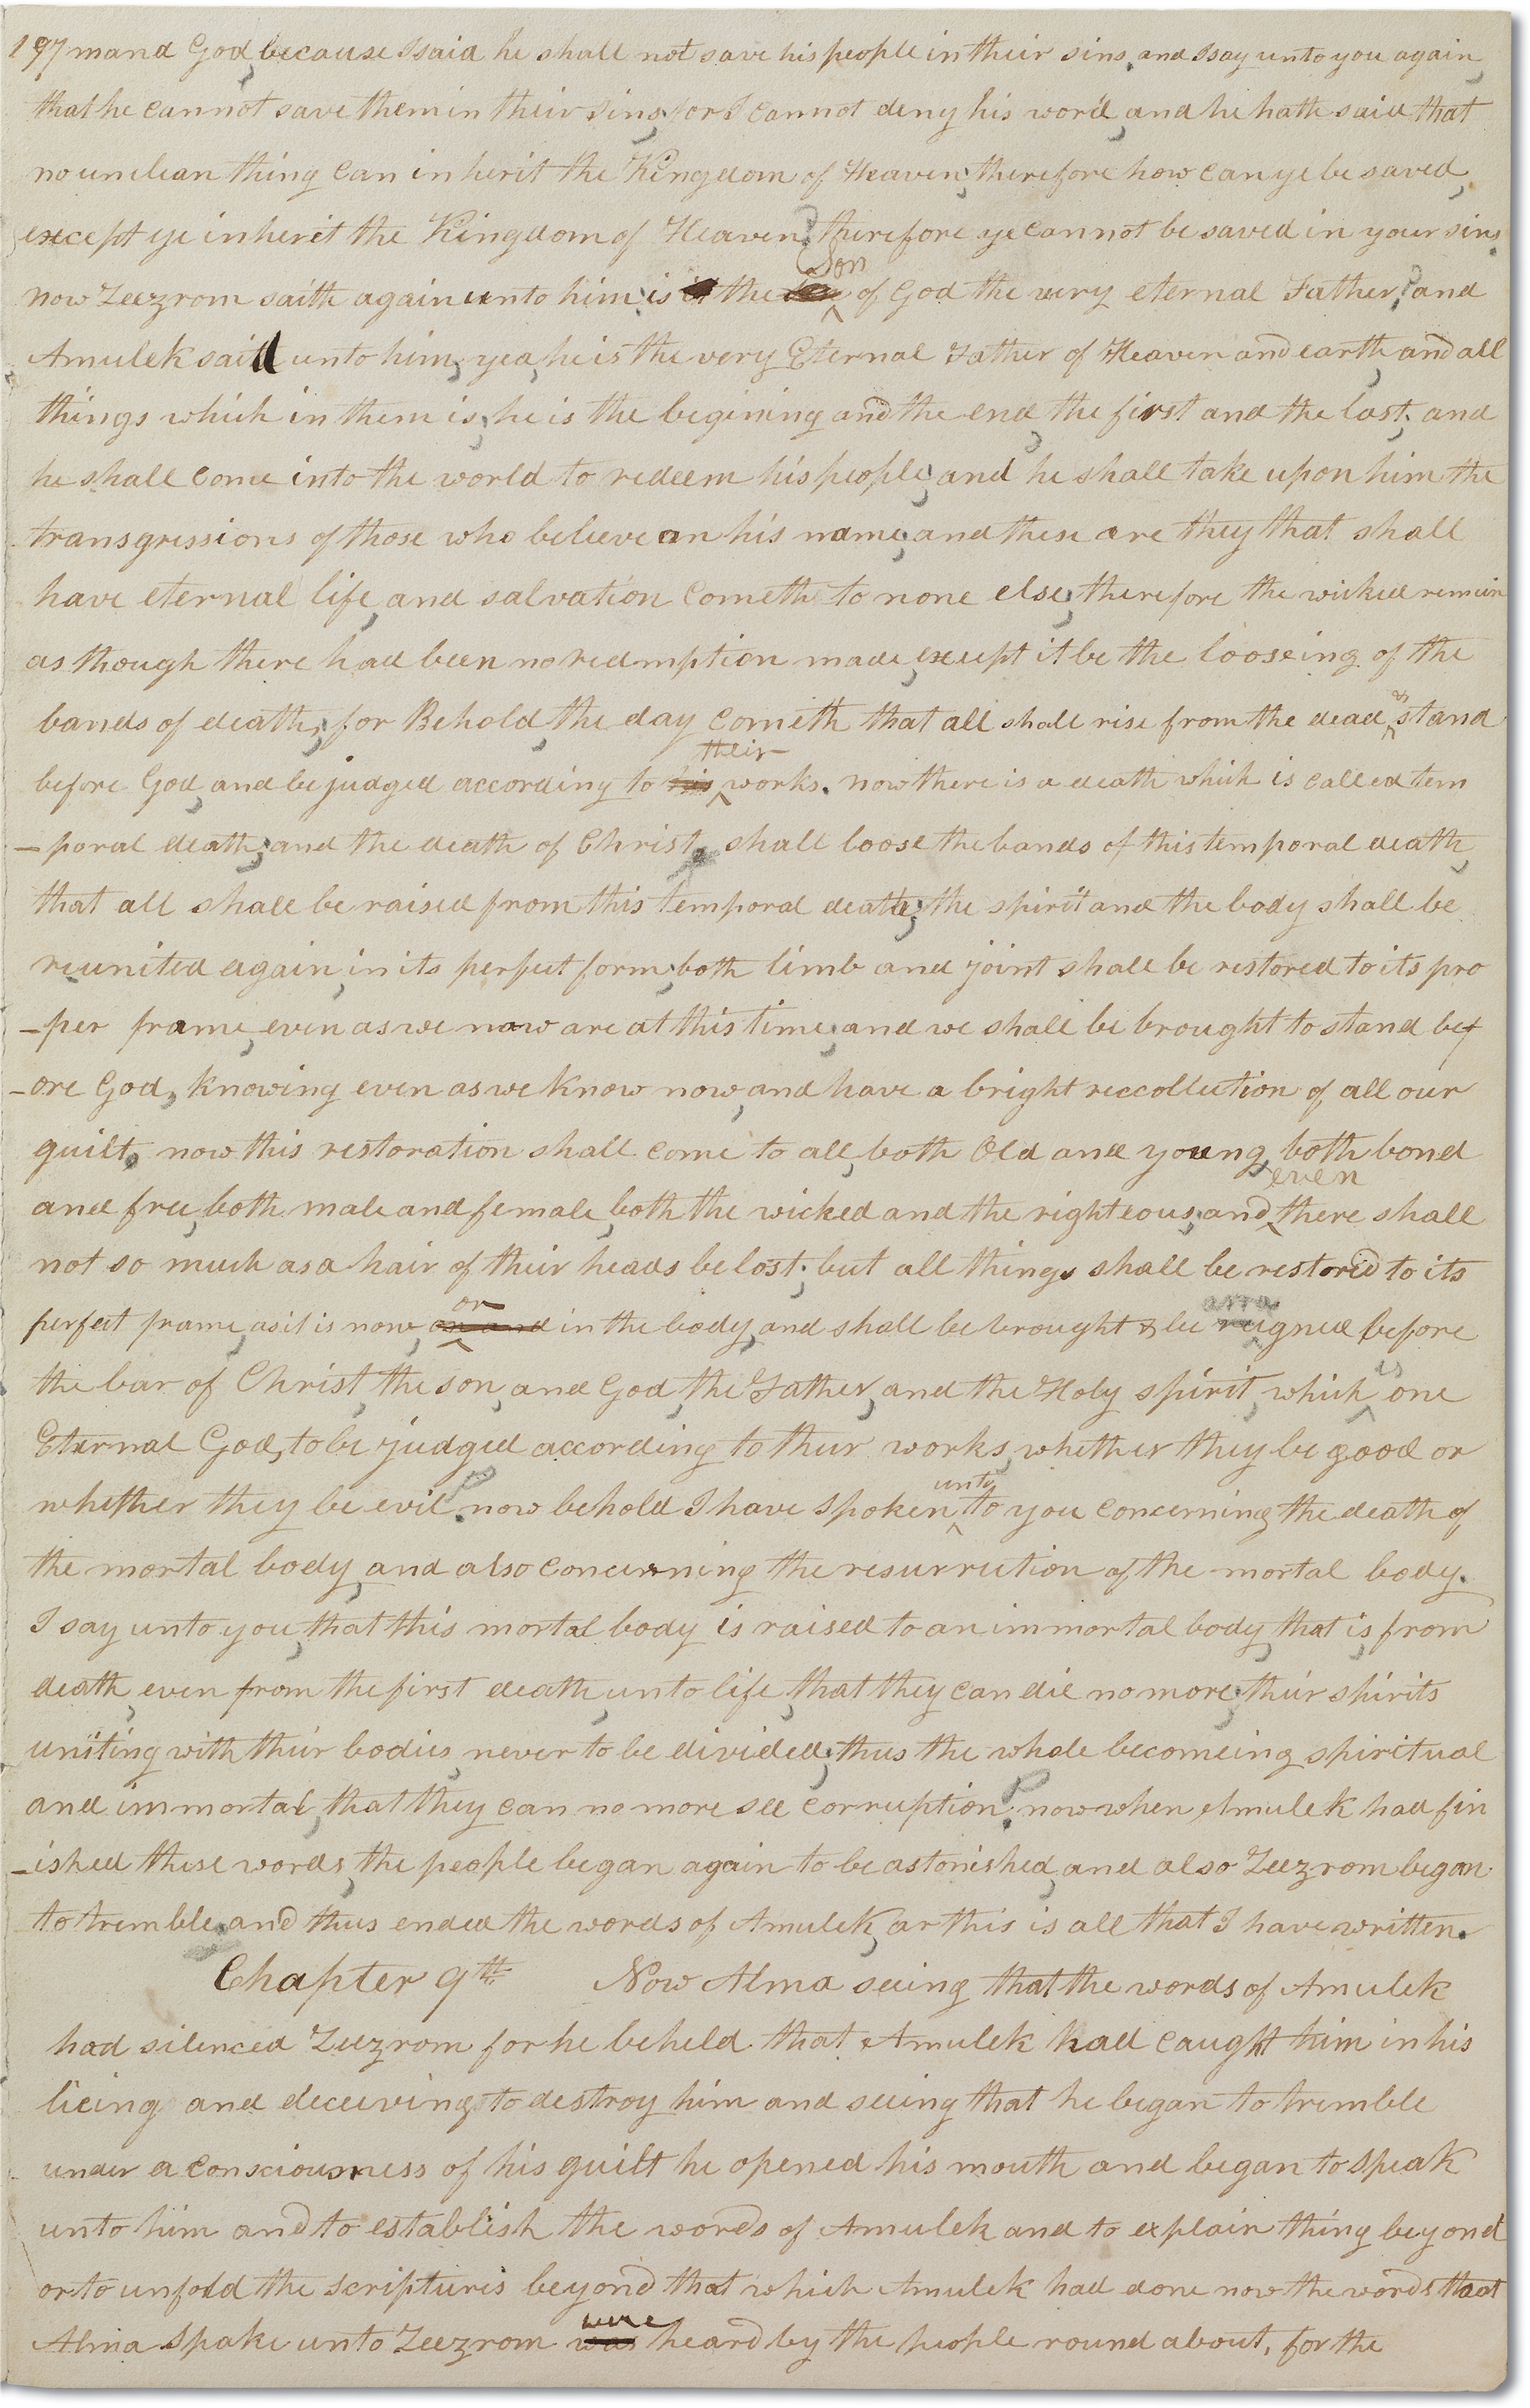 197 mand God, because I said he shall not save his people in their sins, and I say unto you again,
that he cannot save them in their sins; for I cannot deny his word, and he hath said that
no unclean thing can inherit the Kingdom of Heaven; therefore how can ye be saved,
except ye inherit the Kingdom of Heaven? therefore ye cannot be saved in your sins.
son
now Zeezrom saith again unto him; is the of God the very eternal Father? and
Amulek said unto him, yea, he is the very Eternal Father of Heaven and earth, and all
things which in them is; he is the begining and the end, the first and the last; and
he shall come into the world to redeem his people; and he shall take upon him the
transgressions of those who believe on his name; and these are they that shall
have eternal life, and salvation cometh to none else; therefore the wicked remain
as though there had been no redmption made, except it be the looseing of the
&
bands of death; for Behold, the day cometh that all shall rise from the dead, stand
their
before God, and be judged according to his works. now there is a death which is called tem
-poral death; and the death of Christ shall loose the bands of this temporal death,
that all shall be raised from this temporal death; the spirit and the body shall be
reunited again, in its perfect form; both limb and joint shall be restored to its pro
-per frame, even as we now are at this time; and we shall be brought to stand bef
-ore God, knowing even as we know now, and have a bright reccollection of all our
guilt. now this restoration shall come to all, both Old and young, both bond
even
and free, both male and female, both the wicked and the righteous; and there shall
not so much as a hair of their heads be lost; but all things shall be restored to its
or arra
perfect frame, as it is now, or and in the body, and shall be brought & be reigned before
is
the bar of Christ, the son, and God, the Father, and the Holy spirit, which one
Eternal God, to be judged according to their works, whether they be good or
unto
whether they be evil. now behold I have spoken to you concerning the death of
the mortal body, and also concerning the resurrection of the mortal body.
I say unto you, that this mortal body is raised to an immortal body, that is, from
death, even from the first death, unto life, that they can die no more; their spirits
uniting with their bodies, never to be divided; thus the whole becomeing spiritual
and immortal, that they can no more see corruption. now when Amulek had fin
-ished these words, the people began again to be astonished, and also Zeezrom began
to tremble, and thus ended the words of Amulek, or this is all that I have written.
Chapter 9th Now Alma seeing that the words of Amulek
had silenced Zeezrom for he beheld that Amulek had caught him in his
lieing and deceiving to destroy him and seeing that he began to tremble
under a consciousness of his guilt he opened his mouth and began to speak
unto him and to establish the words of Amulek and to explain thing beyond
or to unfold the scriptures beyond that which Amulek had done now the words that
were
Alma spake unto Zeezrom was heard by the people round about, for the